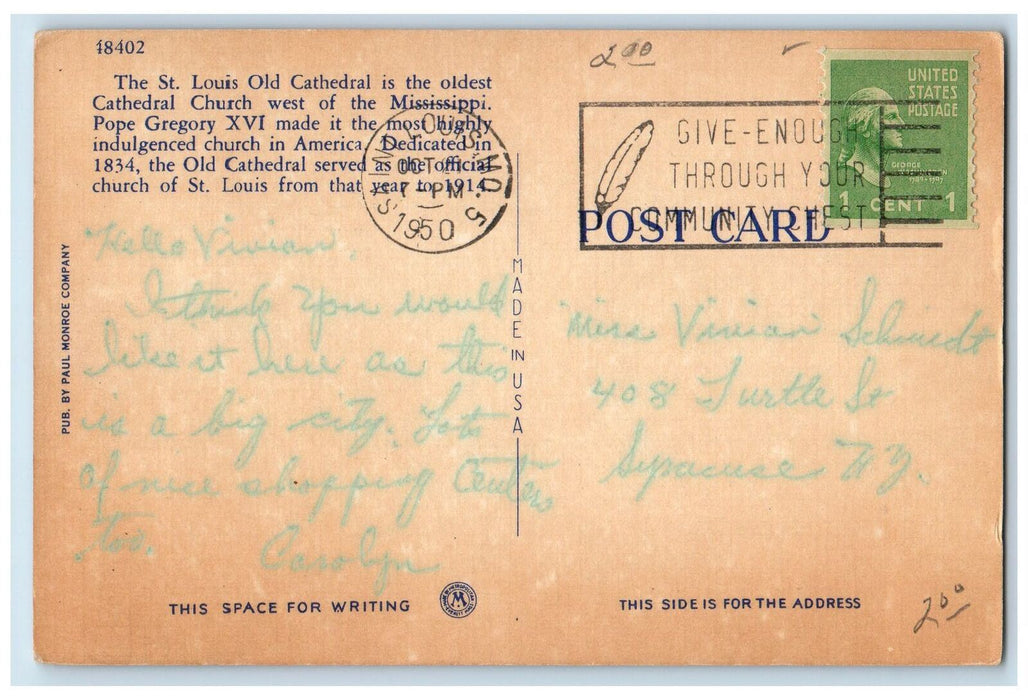 48402
The St. Louis Old Cathedral is the oldest
Cathedral Church west of the Mississippi.
Pope Gregory XVI made it the most highly
indulgenced church in America. Dedicated in
1834, the Old Cathedral served as the official
church of St. Louis from that year to 1914.
Hello Vivian,
I think you would
like it here as this
is a big city. Lots
of nice shopping Centers
too.
Carolyn
THIS SPACE FOR WRITING
PUB. BY PAUL MONROE COMPANY
MADE IN USA
SAINT LOUIS, MO. 5
OCT
7 PM
1950
2.00
GIVE-ENOUGH
THROUGH YOUR
COMMUNITY CHEST
UNITED
STATES
POSTAGE
GEORGE
1 CENT 1
POST CARD
Miss Vivian Schmidt
408 Turtle St
Syracuse N.Y.
THIS SIDE IS FOR THE ADDRESS
2.00